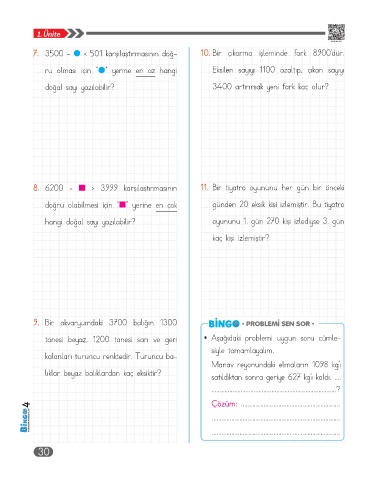 1. Ünite
7. 3500 - ● < 501 karşılaştırmasının doğ-
ru olması için "●" yerine en az hangi
doğal sayı yazılabilir?
8. 6200 - ■ > 3999 karşılaştırmasının
doğru olabilmesi için "■" yerine en çok
hangi doğal sayı yazılabilir?
9. Bir akvaryumdaki 3700 balığın 1300
tanesi beyaz, 1200 tanesi sarı ve geri
kalanları turuncu renktedir. Turuncu ba-
lıklar beyaz balıklardan kaç eksiktir?
10. Bir çıkarma işleminde fark 8900'dür.
Eksilen sayıyı 1100 azaltıp, çıkan sayıyı
3400 artırırsak yeni fark kaç olur?
11. Bir tiyatro oyununu her gün bir önceki
günden 20 eksik kişi izlemiştir. Bu tiyatro
oyununu 1. gün 270 kişi izlediyse 3. gün
kaç kişi izlemiştir?
BİNGO • PROBLEMİ SEN SOR •
• Aşağıdaki problemi uygun soru cümle-
siyle tamamlayalım.
Manav reyonundaki elmaların 1098 kg'ı
satıldıktan sonra geriye 627 kg'ı kaldı. ....
..............................................................?
Çözüm: ..................................................
..............................................................
..............................................................
BİNGO 4
30